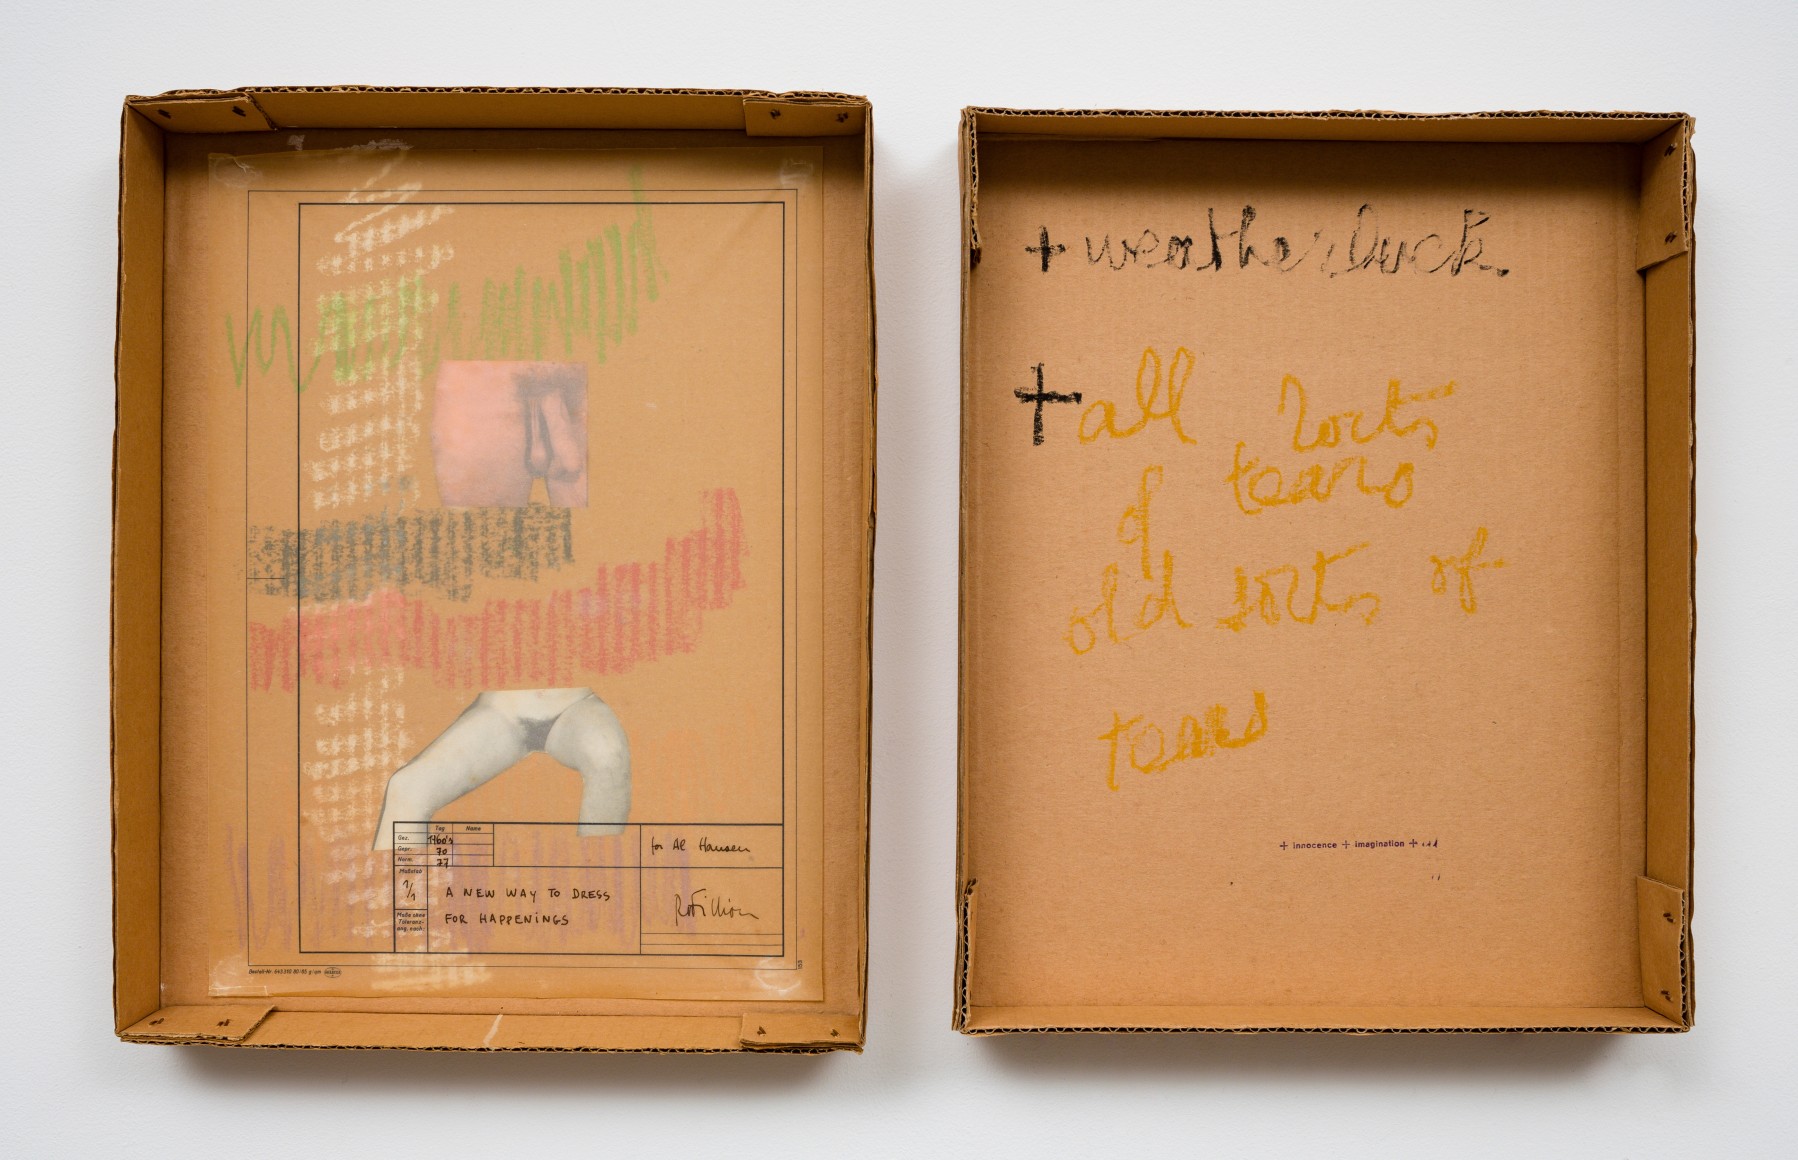 Tag Name
Gez. 1960's
Gepr. 70
Norm 77
Maßstab
1/1
Maße ohne
Toleranz-
ang. nach:
for Al Hansen
A NEW WAY TO DRESS
FOR HAPPENINGS
R. Filliou
Bestell-Nr.
+ weather Duck.
+ all sorts
of tears
old sorts of
tears
+ innocence + imagination +